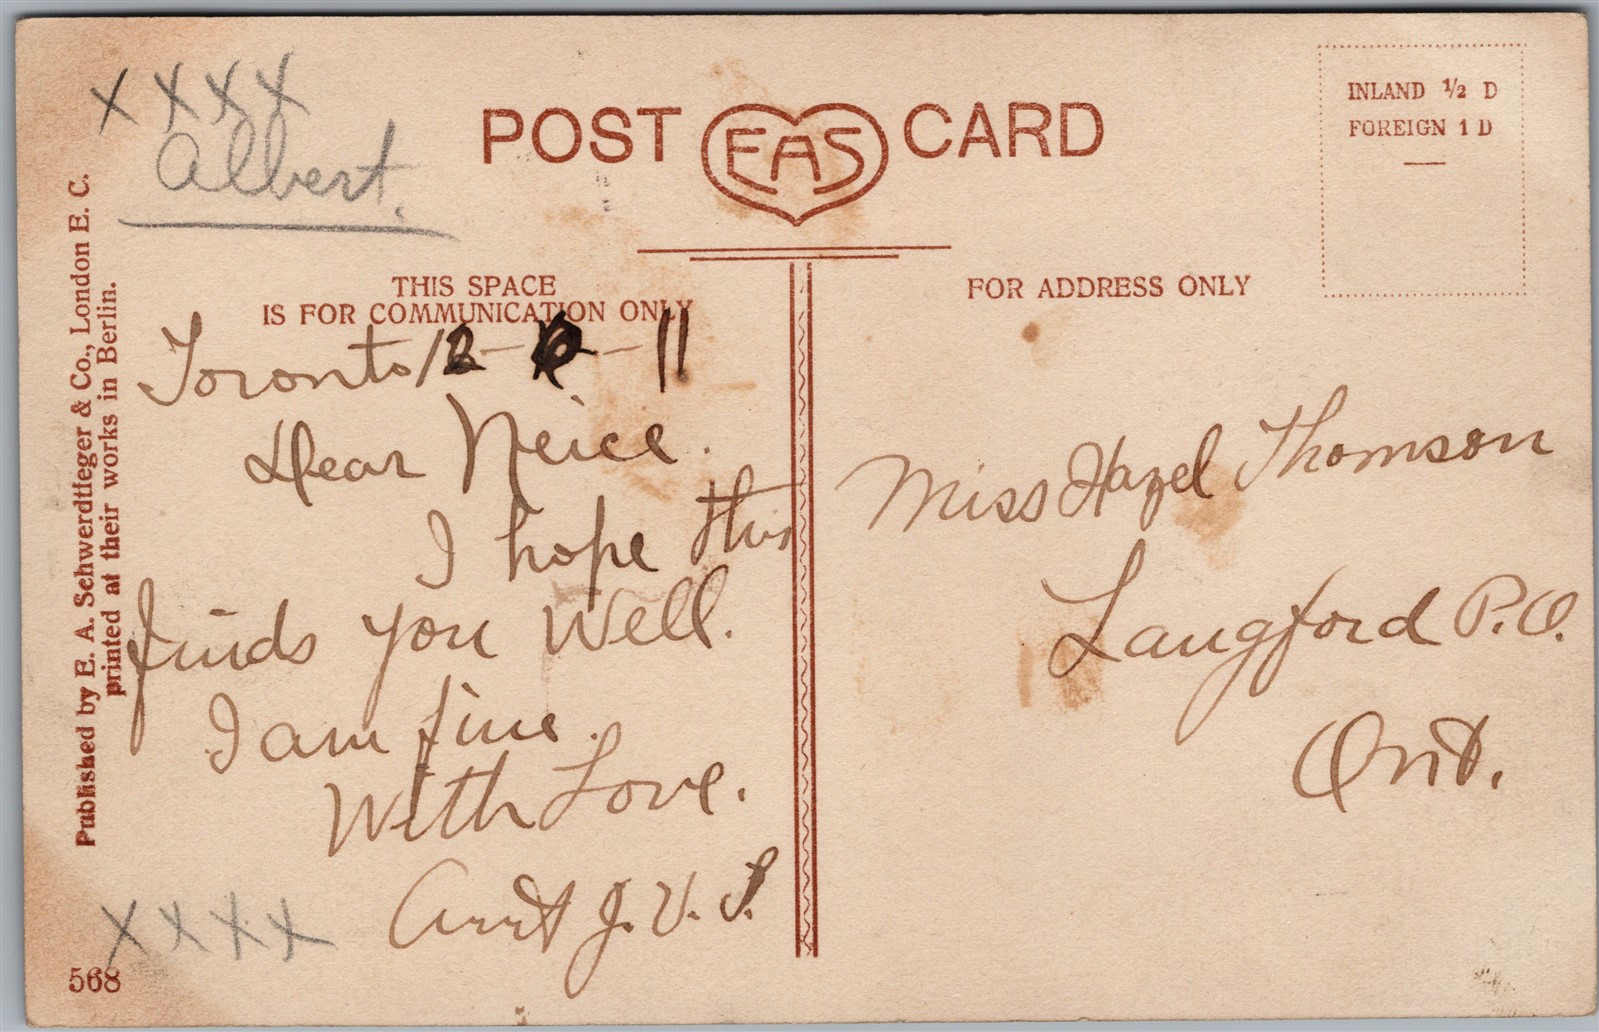 XXXX
Albert.
POST EAS CARD
INLAND ½ D
FOREIGN 1 D
THIS SPACE
IS FOR COMMUNICATION ONLY
FOR ADDRESS ONLY
Published by E. A. Schwerdtfeger & Co., London E. C.
printed at their works in Berlin.
Toronto 12 - 6 - 11
Dear Neice.
I hope this
finds you well.
I am fine.
With Love.
Aunt J. V. S.
XXXX
568
Miss Hazel Thomson
Langford P.O.
Ont.